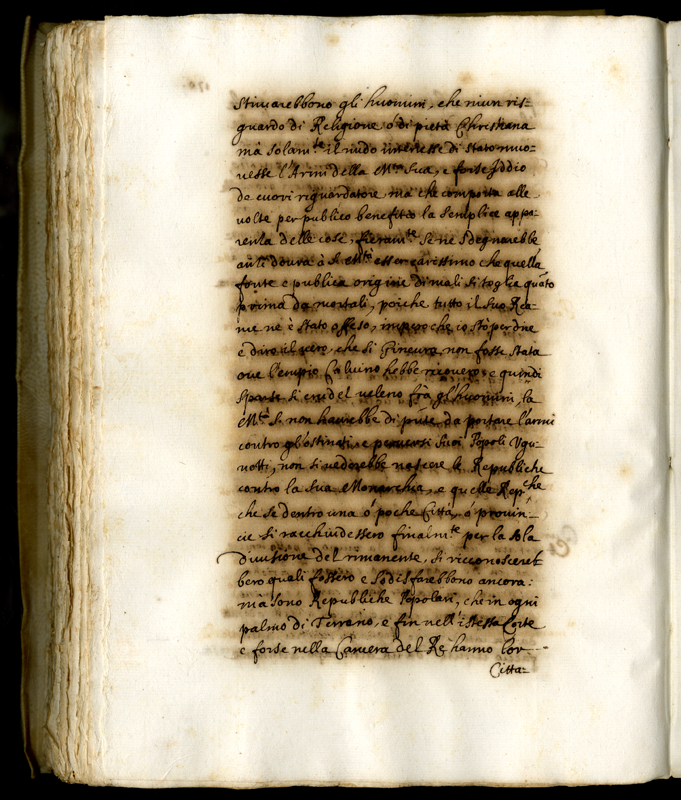 Stimarebbono gli huomini, che niun ris=
guardo di Religione ò di pietà Christiana
mà solam.te il nudo interesse di stato mo-
vesse l'Armi della M.tà Sua, e forse Iddio
de cuori riguardatore mà che comporta alle
volte per publico benefitio la semplice appa
renza delle cose, fieram.te se ne sdegnarebbe
anzi dovrà à S. M.tà esser carissimo che quella
fonte e publica origine di mali si toglia quãto
prima da mortali, poiche tutto il suo Rea-
me ne è stato offeso, impero che io stò per dire
e dirò il vero, che si Gineura non fosse stata
oue l'empio Caluino hebbe ricouero, e quindi
sparse si crudel veleno frà gl'huomini, la
M.tà S. non haurebbe di portare l'armi
contro gl'ostinati, e peruersi suoi Popoli Vgu-
notti, non si vedorebbe nascere le Republiche
contro la sua Monarchia, e quelle Rep.che
che se dentro una ò poche Città, ò prouin-
cie si racchiudessero finalm.te per la sola
diuisione del rimanente, si riconoscereb
bero quali fossero e sodisfarebbono ancora:
mà sono Republiche Popolari, che in ogni
palmo di Terreno, e fin nell'istessa Corte
e forse nella Camera del Rè hanno lor--
Città=